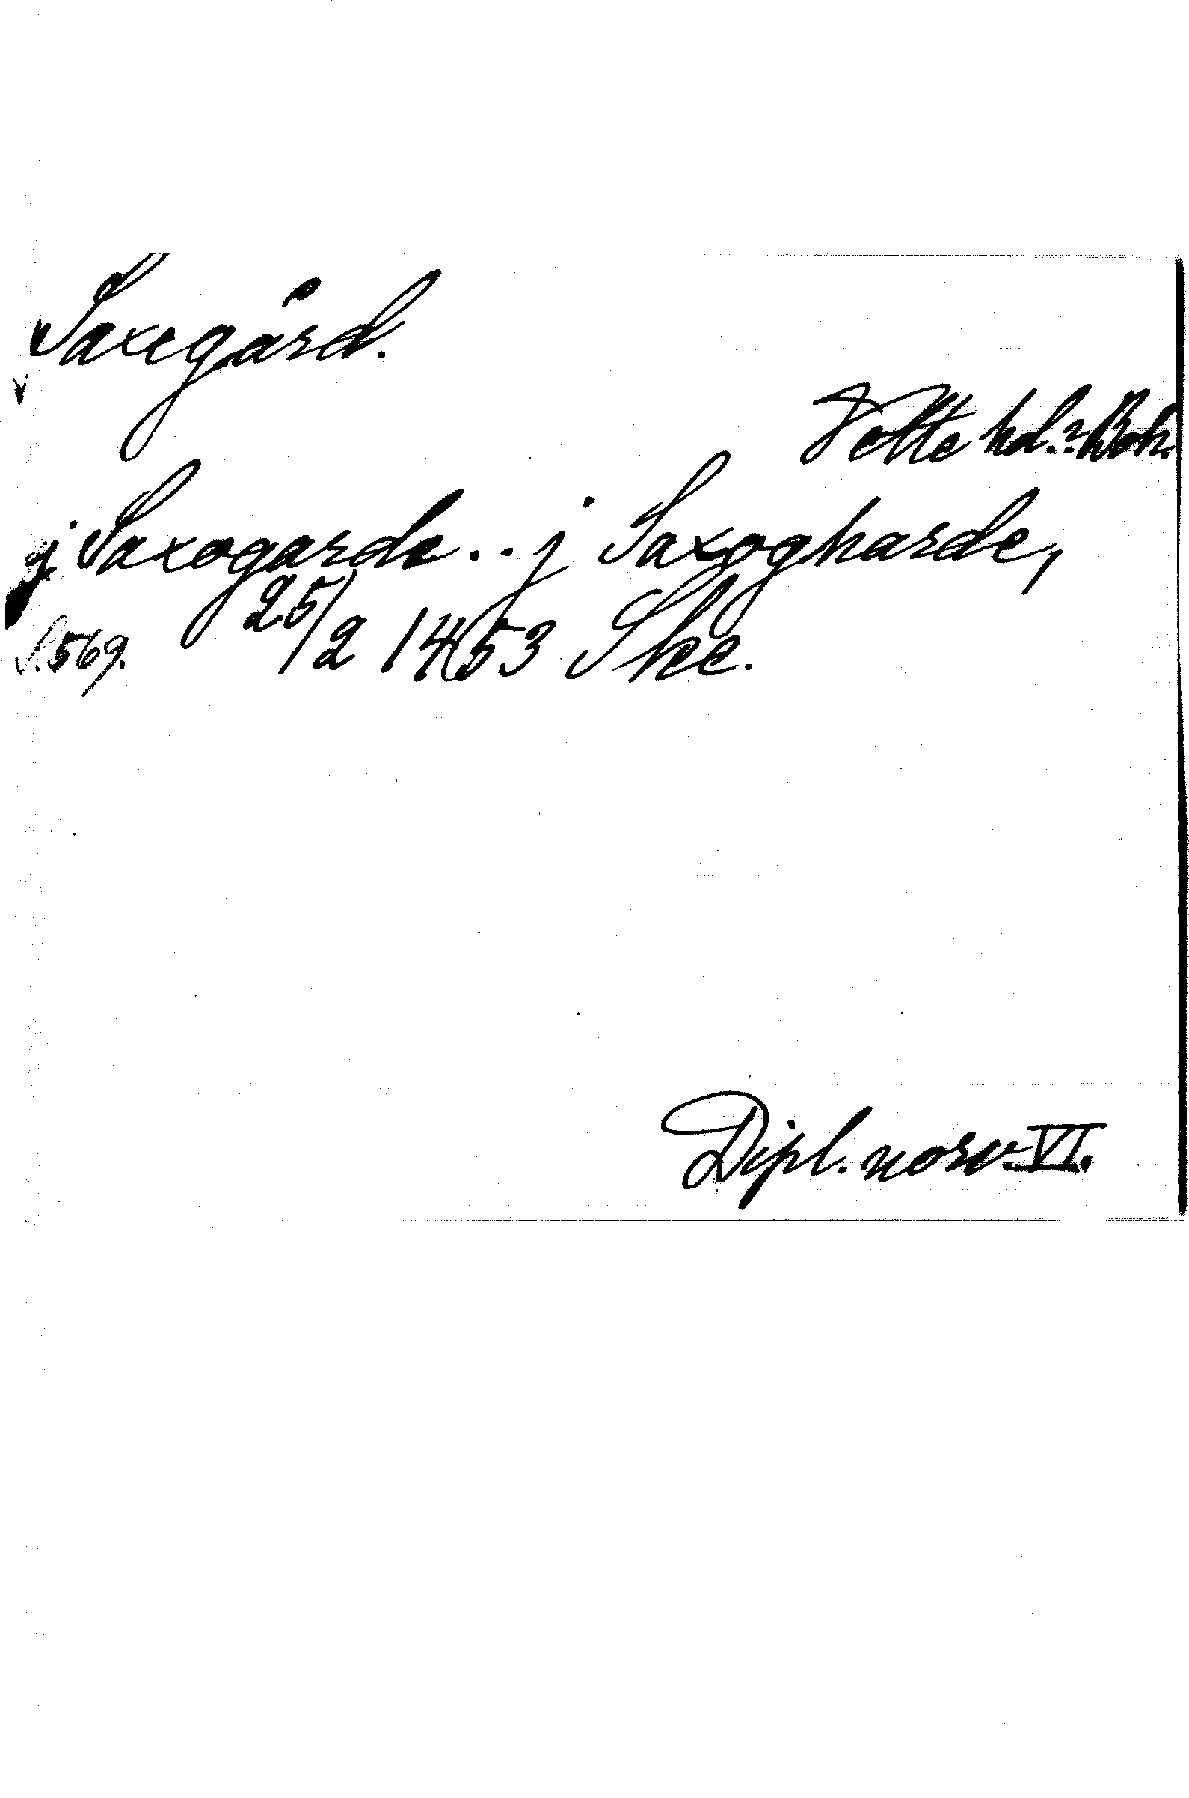 Saxegård.
Vette hd.? Boh.
j Saxogarde .. j Saxogharde,
S. 569. 25/2 1453 Skee.
Dipl. norv. VI.